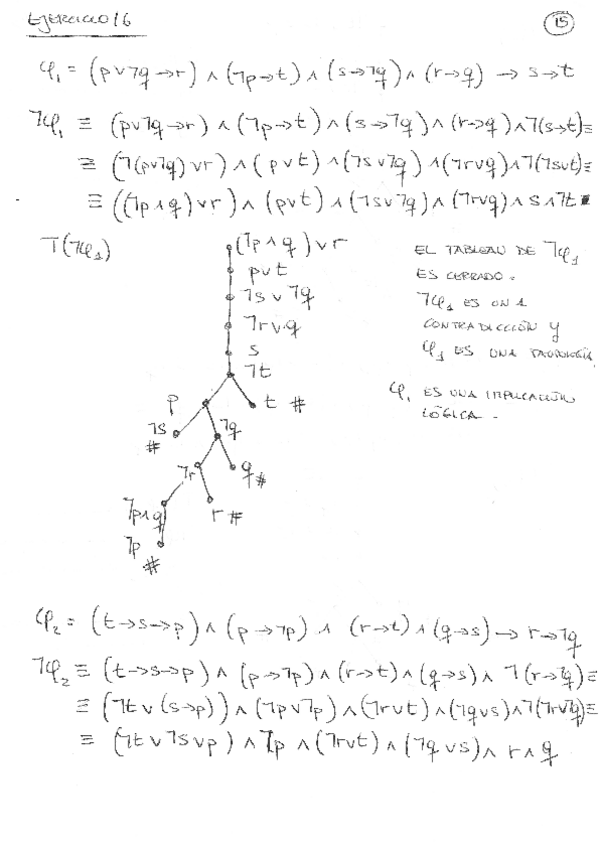 EJERCICIO 16
15
φ₁ = (p∨¬q→r) ∧ (¬p→t) ∧ (s→¬q) ∧ (r→q) → s→t
¬φ₁ ≡ (p∨¬q→r) ∧ (¬p→t) ∧ (s→¬q) ∧ (r→q) ∧ ¬(s→t) ≡
≡ (¬(p∨¬q)∨r) ∧ (p∨t) ∧ (¬s∨¬q) ∧ (¬r∨q) ∧ ¬(¬s∨t) ≡
≡ ((¬p∧q)∨r) ∧ (p∨t) ∧ (¬s∨¬q) ∧ (¬r∨q) ∧ s ∧ ¬t
T(¬φ₁)
(¬p∧q)∨r
p∨t
¬s∨¬q
¬r∨q
s
¬t
p t #
¬s # ¬q
¬r q #
¬p∧q r #
¬p
#
EL TABLEAU DE ¬φ₁
ES CERRADO.
¬φ₁ ES UNA
CONTRADICCIÓN Y
φ₁ ES UNA TAUTOLOGÍA
φ₁ ES UNA IMPLICACIÓN
LÓGICA.
φ₂ = (t→s→p) ∧ (p→¬p) ∧ (r→t) ∧ (q→s) → r→¬q
¬φ₂ ≡ (t→s→p) ∧ (p→¬p) ∧ (r→t) ∧ (q→s) ∧ ¬(r→¬q) ≡
≡ (¬t∨(s→p)) ∧ (¬p∨¬p) ∧ (¬r∨t) ∧ (¬q∨s) ∧ ¬(¬r∨¬q) ≡
≡ (¬t∨¬s∨p) ∧ ¬p ∧ (¬r∨t) ∧ (¬q∨s) ∧ r∧q